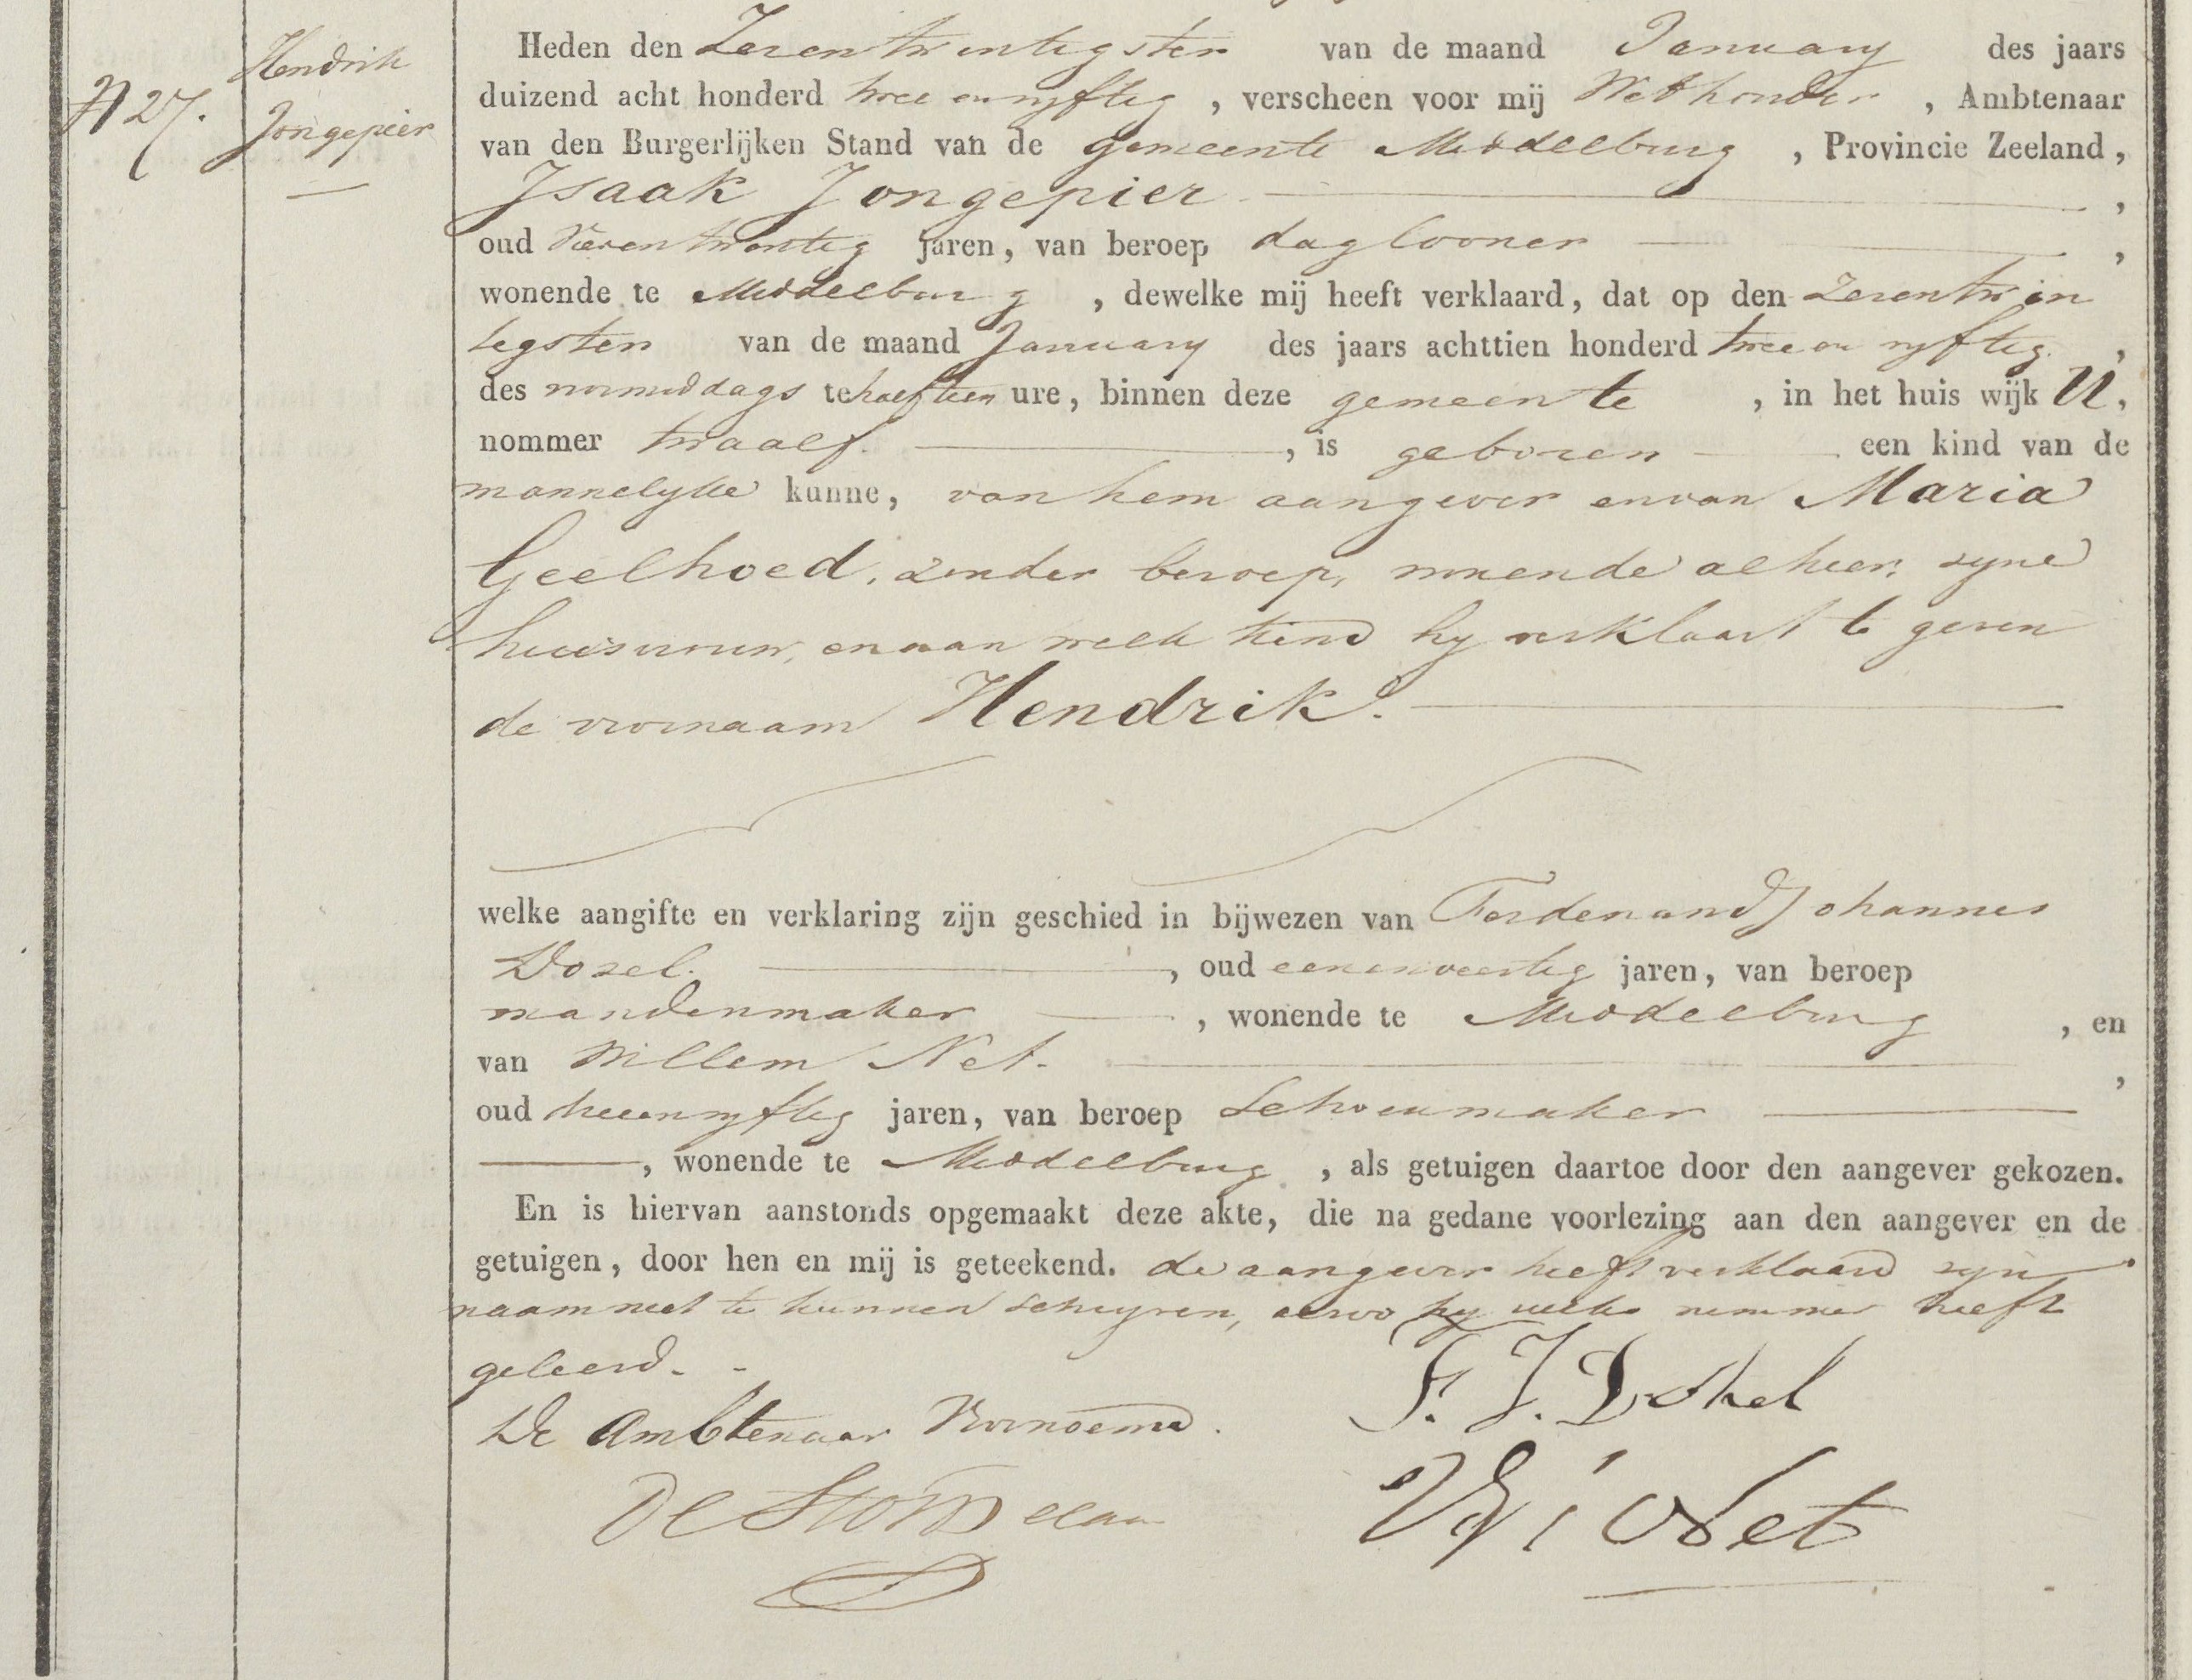 N 27.
Hendrik
Jongepier
Heden den Zeventwintigsten van de maand January des jaars
duizend acht honderd twee en vyftig , verscheen voor mij Wethouder , Ambtenaar
van den Burgerlijken Stand van de gemeente Middelburg , Provincie Zeeland ,
Isaak Jongepier ,
oud Vierentwintig jaren , van beroep daglooner ,
wonende te Middelburg , dewelke mij heeft verklaard , dat op den zeventwin
tigsten van de maand January des jaars achttien honderd twee en vyftig ,
des voormiddags te half tien ure , binnen deze gemeente , in het huis wijk U ,
nommer twaalf. , is geboren een kind van de
mannelyke kunne , van hem aangever en van Maria
Geelhoed, zonder beroep, wonende alhier, zyne
huisvrouw, en aan welk kind hy verklaart te geven
de voornaam Hendrik.
welke aangifte en verklaring zijn geschied in bijwezen van Ferdenand Johannes
Dozel. , oud eenenveertig jaren , van beroep
mandenmaker , wonende te Middelburg , en
van Willem Net. ,
oud tweenvyftig jaren , van beroep Schoenmaker
, wonende te Middelburg , als getuigen daartoe door den aangever gekozen.
En is hiervan aanstonds opgemaakt deze akte, die na gedane voorlezing aan den aangever en de
getuigen , door hen en mij is geteekend. de aangever heeft verklaard zyn
naam niet te kunnen schryven, alzoo hy zulks nimmer heeft
geleerd. -
De Ambtenaar Voornoemd.
F. J. Dohel
W Net